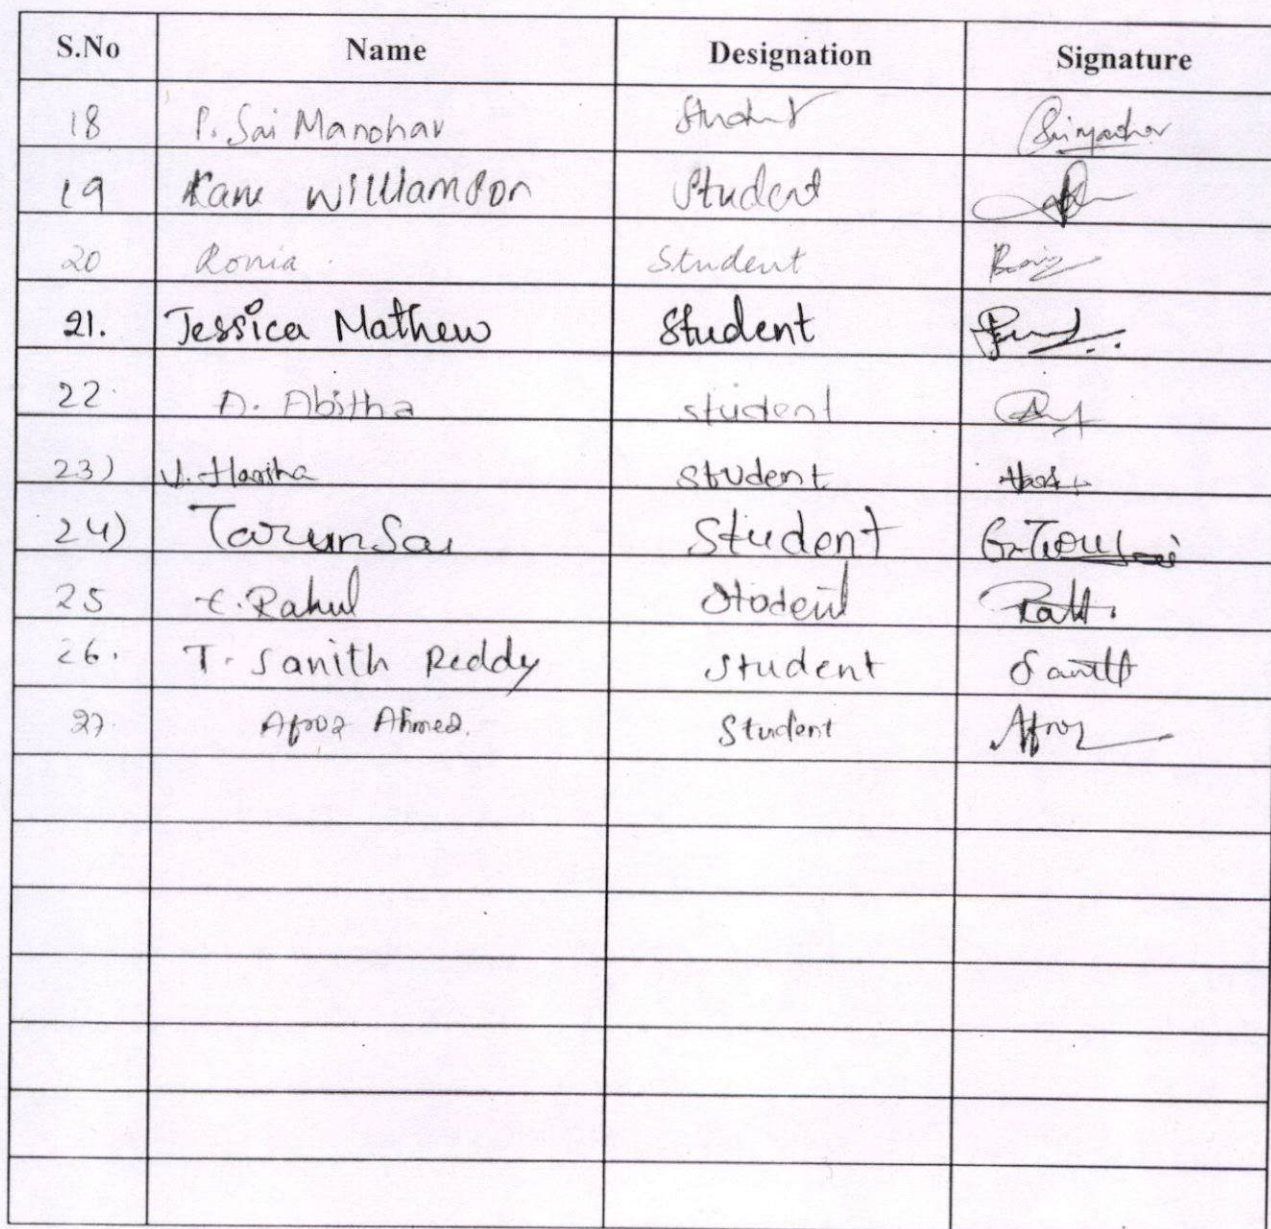 S.No Name Designation Signature
18 P. Sai Manohar Student
19 Kane Williamson Student
20 Ronia Student
21. Jessica Mathew Student
22. A. Abitha student
23) V. Harika student
24) Tarun Sai Student G. Tarun Sai
25 E. Rahul Student
26. T. Sanith Reddy Student Sanith
27. Afroz Ahmed. Student Afroz